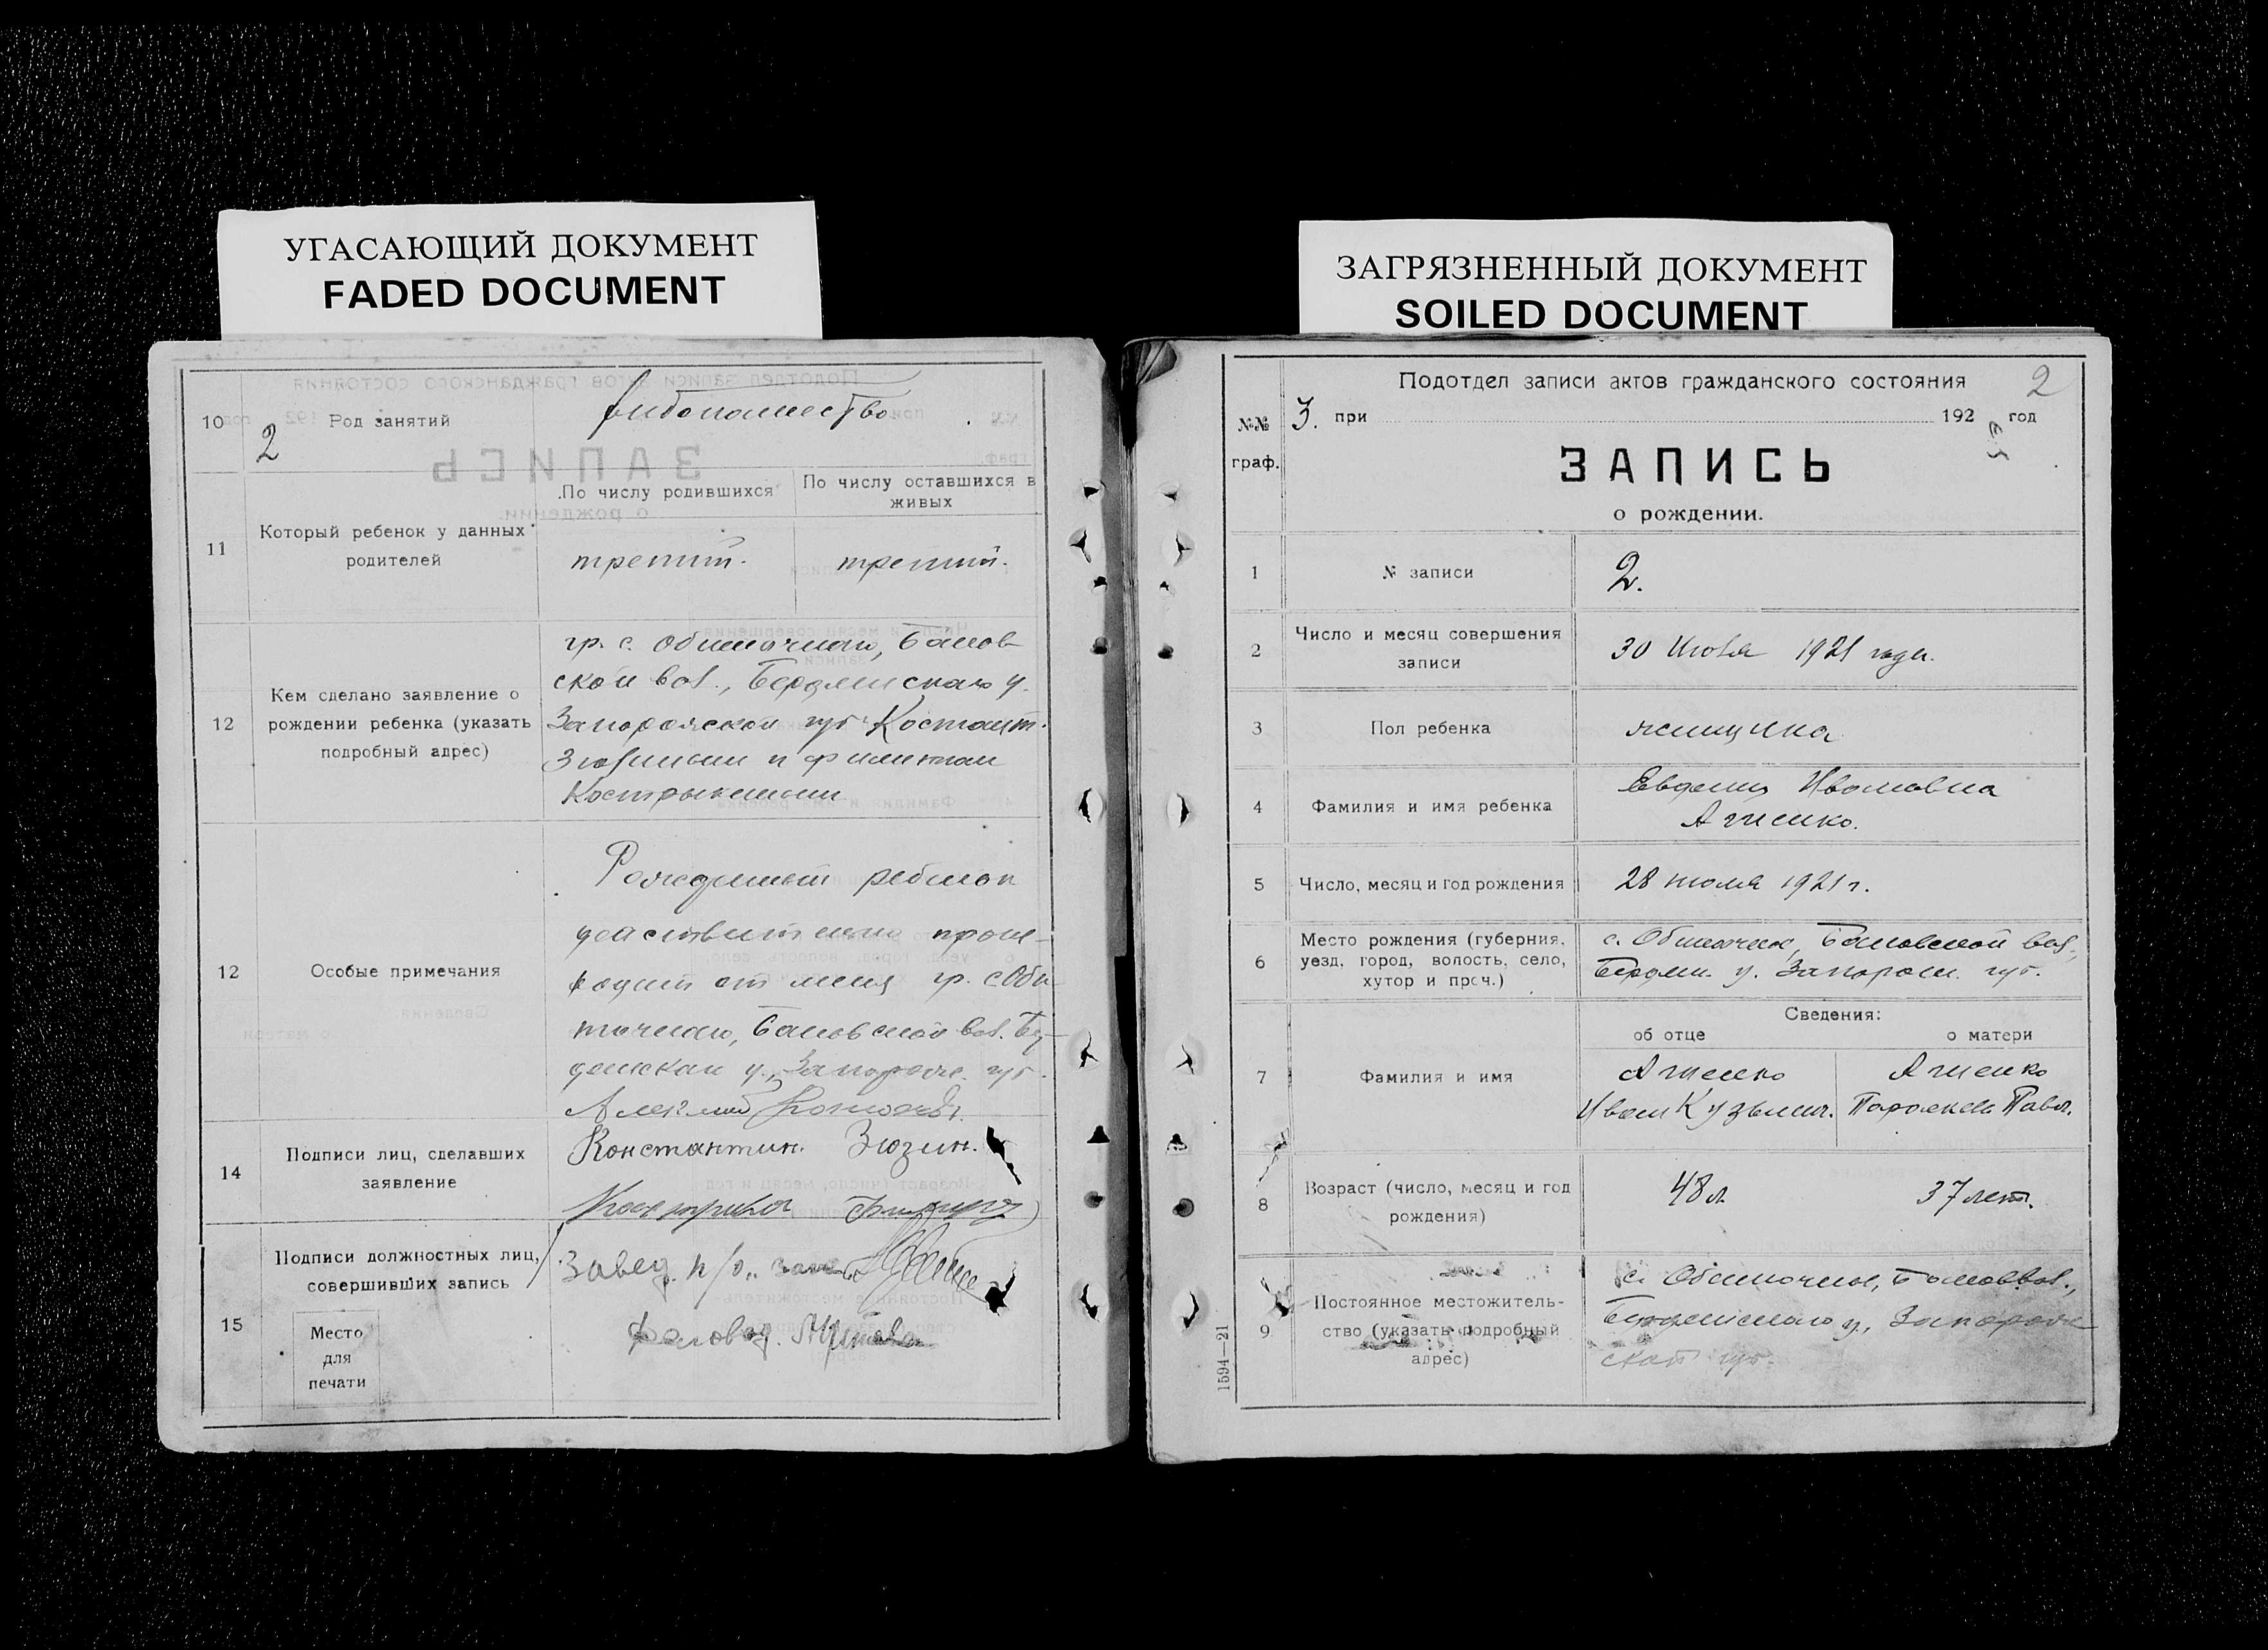 УГАСАЮЩИЙ ДОКУМЕНТ
FADED DOCUMENT
10
2
Род занятий
хлебопашество
11
Который ребенок у данных
родителей
По числу родившихся
По числу оставшихся в
живых
третий.
третий.
12
Кем сделано заявление о
рождении ребенка (указать
подробный адрес)
гр. с. Обиточного, Банов-
ской вол., Бердянского у.
Запорожской губ. Констант.
Зюзиным и
12
Особые примечания
Рожденный ребенок
действительно
от меня гр. с. Оби-
точного, Бановской вол. Бер-
дянскаи у., Запорож. губ.
14
Подписи лиц, сделавших
заявление
Константин. Зюзин.
15
Подписи должностных лиц,
совершивших запись
Место
для
печати
Завед. п/о.
Деловод.
ЗАГРЯЗНЕННЫЙ ДОКУМЕНТ
SOILED DOCUMENT
Подотдел записи актов гражданского состояния
2
№№
граф.
3. при 192 год
ЗАПИСЬ
о рождении.
1
№ записи
2.
2
Число и месяц совершения
записи
30 Июля 1921 года.
3
Пол ребенка
женщина
4
Фамилия и имя ребенка
Ивановна
5
Число, месяц и год рождения
28 июля 1921 г.
6
Место рождения (губерния,
уезд, город, волость, село,
хутор и проч.)
с. Обиточное, Бановской вол.,
Бердян. у. Запорож. губ.
7
Фамилия и имя
Сведения:
об отце
о матери
Иван Кузьмич.
Павл.
8
Возраст (число, месяц и год
рождения)
48 л.
37 лет.
9
Постоянное местожитель-
ство (указать подробный
адрес)
с. Обиточное, Банов. вол.,
Бердянского у., Запорож-
ской губ.
1594—21